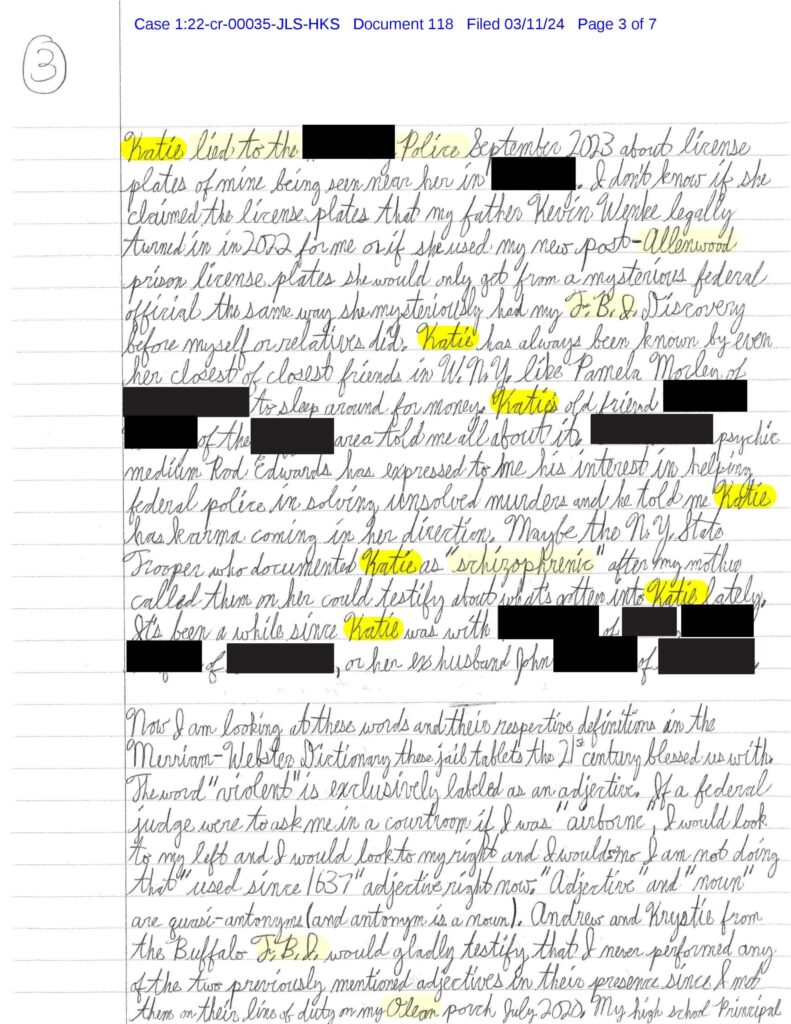 Case 1:22-cr-00035-JLS-HKS Document 118 Filed 03/11/24 Page 3 of 7
3
Katie lied to the Police September 2023 about license
plates of mine being seen near her in . I don't know if she
claimed the license plates that my father Kevin Wenke legally
turned in in 2022 for me or if she used my new post-Allenwood
prison license plates she would only get from a mysterious federal
official the same way she mysteriously had my F.B.I. Discovery
before myself or relatives did. Katie has always been known by even
her closest of closest friends in W.N.Y. like Pamela Morlen of
to sleep around for money. Katie's old friend
of the area told me all about it. psychic
medium Rod Edwards has expressed to me his interest in helping
federal police in solving unsolved murders and he told me Katie
has karma coming in her direction. Maybe the N.Y. State
Trooper who documented Katie as "schizophrenic" after my mother
called them on her could testify about what's gotten into Katie lately.
It's been a while since Katie was with of
of , or her ex husband John of
Now I am looking at these words and their respective definitions in the
Merriam-Webster Dictionary these jail tablets the 21st century blessed us with.
The word "violent" is exclusively labeled as an adjective. If a federal
judge were to ask me in a courtroom if I was "airborne", I would look
to my left and I would look to my right and I would no I am not doing
that "used since 1637" adjective right now. "Adjective" and "noun"
are quasi-antonyms (and antonym is a noun). Andrew and Krystie from
the Buffalo F.B.I. would gladly testify that I never performed any
of the two previously mentioned adjectives in their presence since I met
them on their line of duty on my Olean porch July 2020. My high school Principal